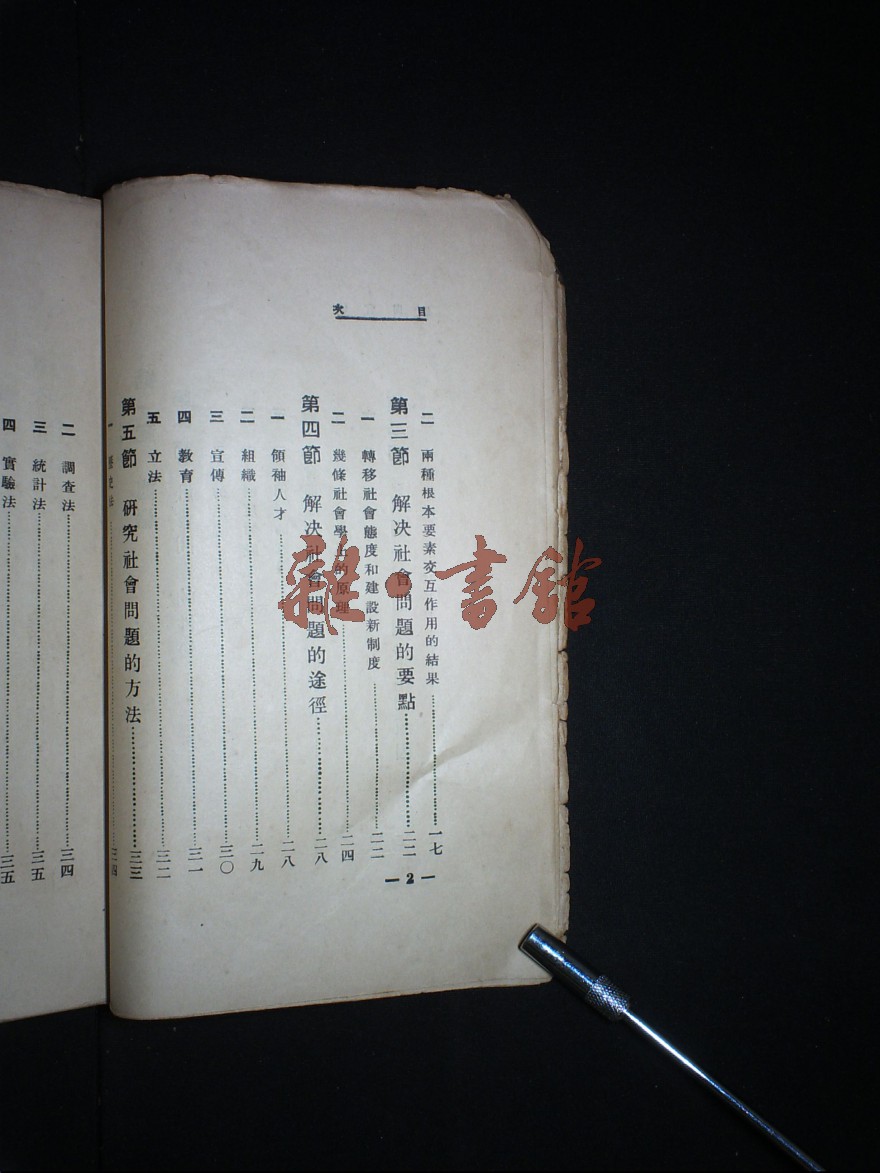 目次
二　兩種根本要素交互作用的結果…………一七
第三節　解決社會問題的要點…………二二
一　轉移社會態度和建設新制度…………二二
二　幾條社會學上的原理…………二四
第四節　解决社會問題的途徑…………二八
一　領袖人才…………二八
二　組織…………二九
三　宣傳…………三〇
四　教育…………三一
五　立法…………三二
第五節　研究社會問題的方法…………三三
一　歷史法…………三四
— 2 —
二　調查法…………三四
三　統計法…………三五
四　實驗法…………三五
雜·書館